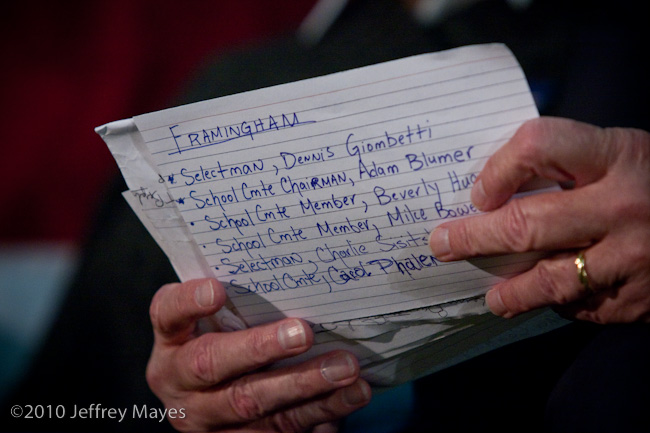 FRAMINGHAM
* Selectman, Dennis Giombetti
* School Cmte Chairman, Adam Blumer
• School Cmte Member, Beverly
• School Cmte Member, Mike
• Selectman, Charlie
• School Cmte, Carol Phalen
©2010 Jeffrey Mayes